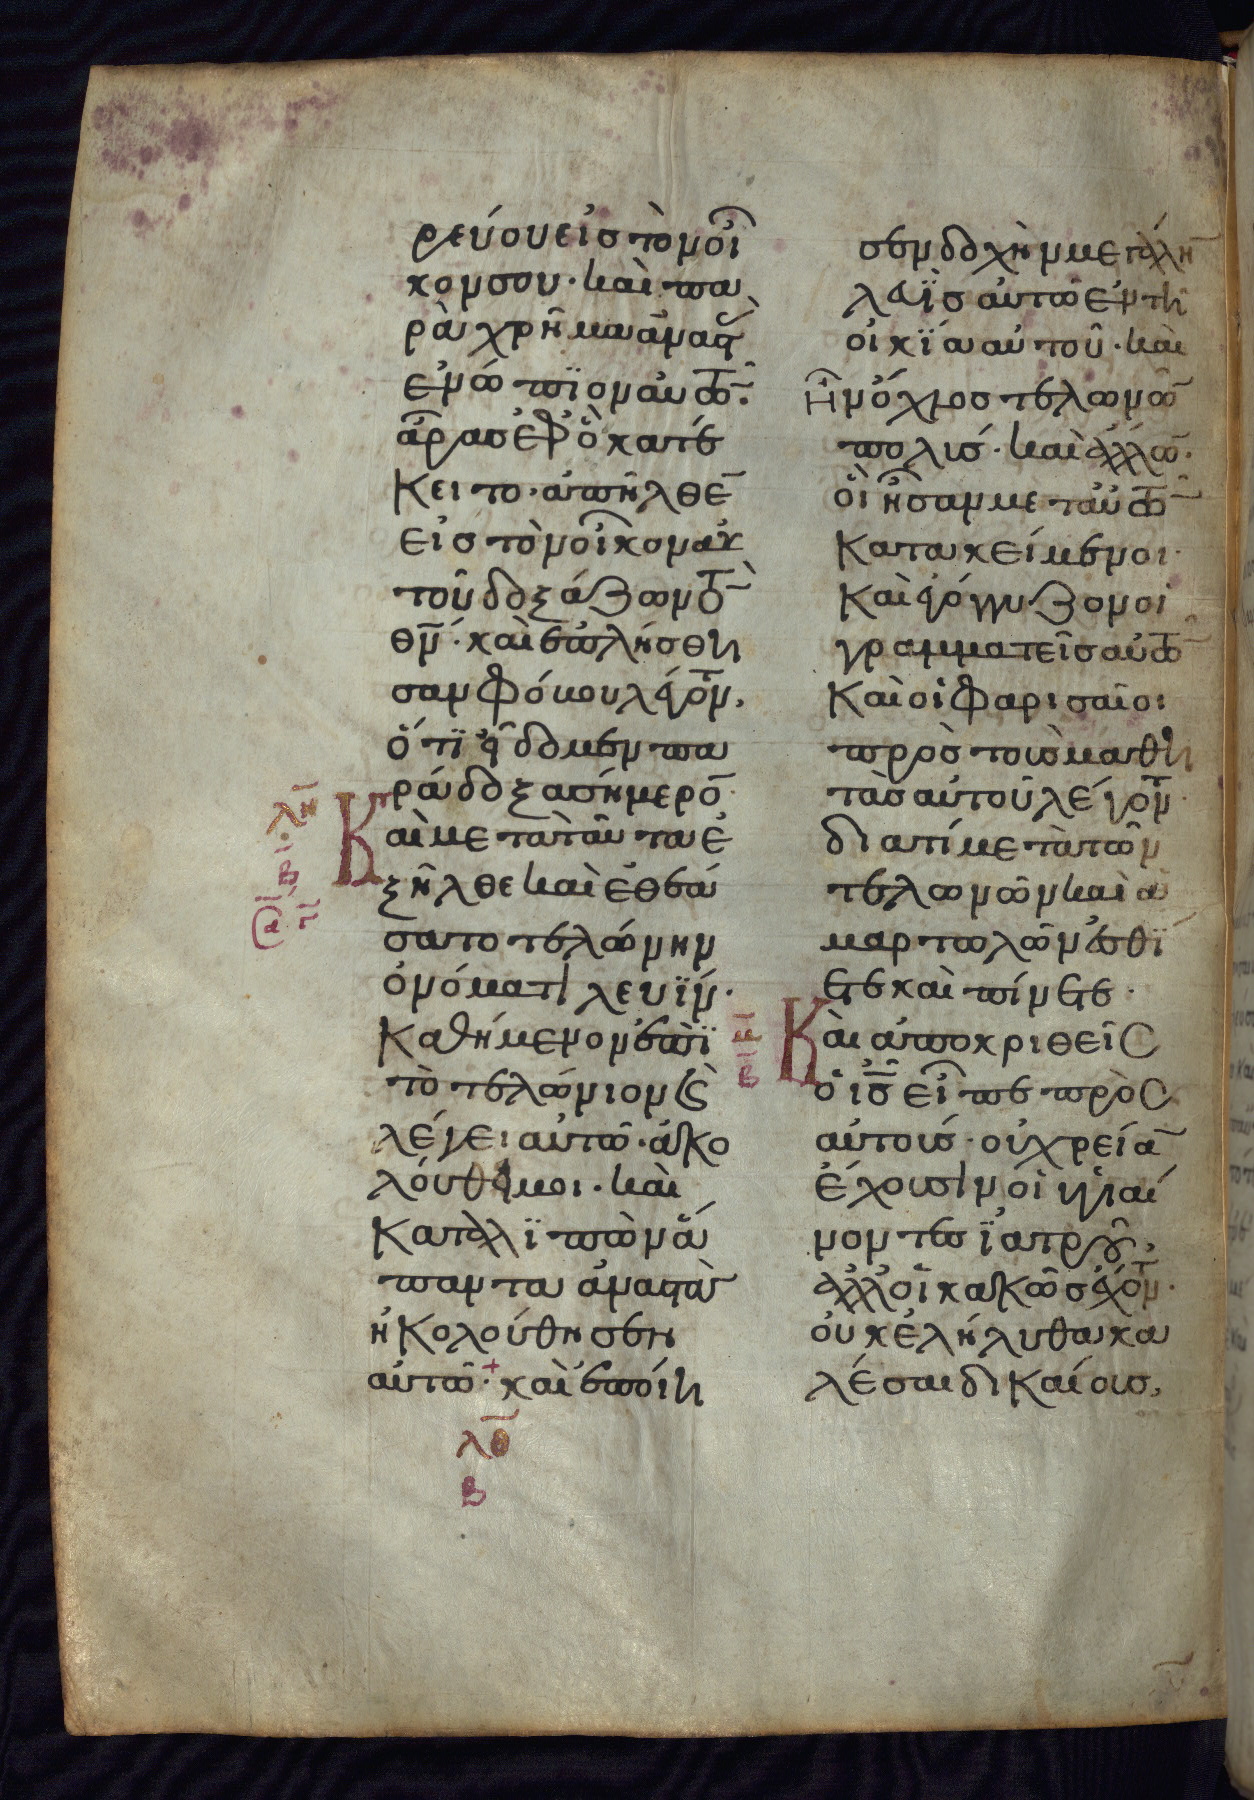 ρεύου εἰς τὸν οἶ
κον σου· καὶ πα
ρὰ χρῆμα ἀναστὰς
ἐνώπϊον αὐτῶν.
ἄρας ἐφ ὃ κατέ
κειτο· ἀπῆλθεν
εἰς τὸν οἶκον αὐ
τοῦ δοξάζων τὸν
θν̄· καὶ ἐπλήσθη
σαν φόβου λέγοντες,
ὅτϊ εἴδομεν πα
ράδοξα σήμερον·
Καὶ μετα ταῦτα ἐ
ξῆλθε καὶ ἐθεά
σατο τελώνην
ὀνόματι λευϊν·
καθήμενον ἐπὶ
τὸ τελώνιον καὶ
λέγει αὐτῶ· ἀκο
λούθει μοι· καὶ
καταλϊπὼν ἅ
παντα ἀναστὰς
ἠκολούθησεν
αὐτῶ· καὶ ἐποίη
λθ̄
β
λη̄
β̄
σεν δοχὴν μεγάλην
λευῒς αὐτῶ ἐν τῆ
οἰκίᾳ αὐτοῦ· καὶ
ἦν ὄχλος τελωνῶν
πολύς· καὶ ἄλλων·
οἳ ἦσαν μετ αὐτῶν
κατακείμενοι·
Καὶ ἐγόγγυζον οἱ
γραμματεῖς αὐτῶν
Καὶ οἱ φαρισαῖοι
πρὸς τοὺς μαθη
τὰς αὐτοῦ λέγοντες·
διατί μετὰ τῶν
τελωνῶν καὶ ἁ
μαρτωλῶν ἐσθϊ
ετε καὶ πίνετε·
μ̄
β̄
Καὶ ἀποκριθεὶς
ὁ ις̄ εἶπε πρὸς
αὐτούς· οὐ χρείαν
ἔχουσιν οἱ ὑγιαί
νοντες ϊατροῦ,
ἀλλ οἱ κακῶς ἔχοντες·
οὐκ ἐλήλυθα κα
λέσαι δικαίους,